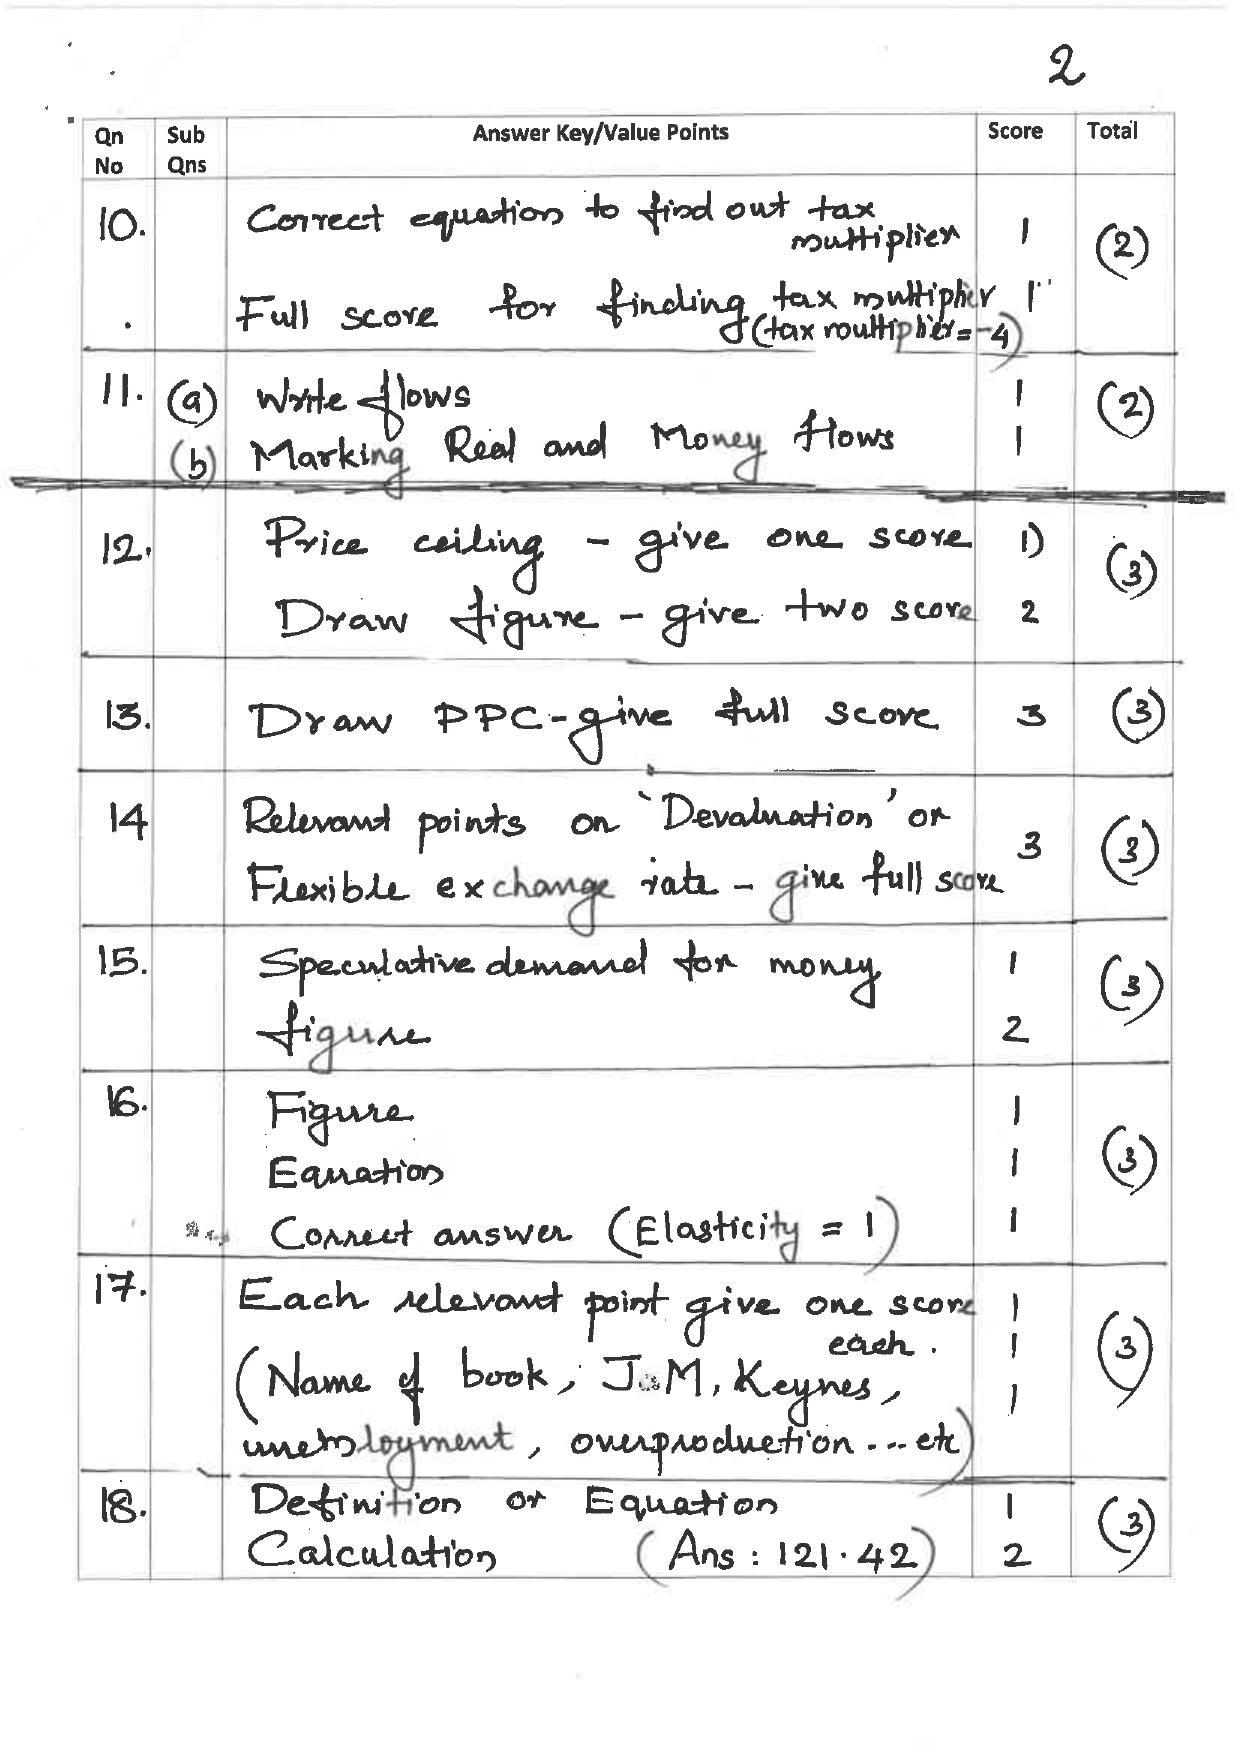 2
Qn No Sub Qns Answer Key/Value Points Score Total
10. Correct equation to find out tax multiplier 1 (2)
Full score for finding tax multiplier 1
(tax multiplier = -4)
11. (a) Write flows 1 (2)
(b) Marking Real and Money flows 1
12. Price ceiling - give one score 1) (3)
Draw figure - give two score 2
13. Draw PPC - give full score 3 (3)
14 Relevant points on 'Devaluation' or
Flexible exchange rate - give full score 3 (3)
15. Speculative demand for money 1 (3)
figure 2
16. Figure 1
Equation 1 (3)
Correct answer (Elasticity = 1) 1
17. Each relevant point give one score 1
each. 1 (3)
(Name of book, J.M, Keynes, 1
unemployment, overproduction ... etc)
18. Definition or Equation 1 (3)
Calculation (Ans : 121.42) 2